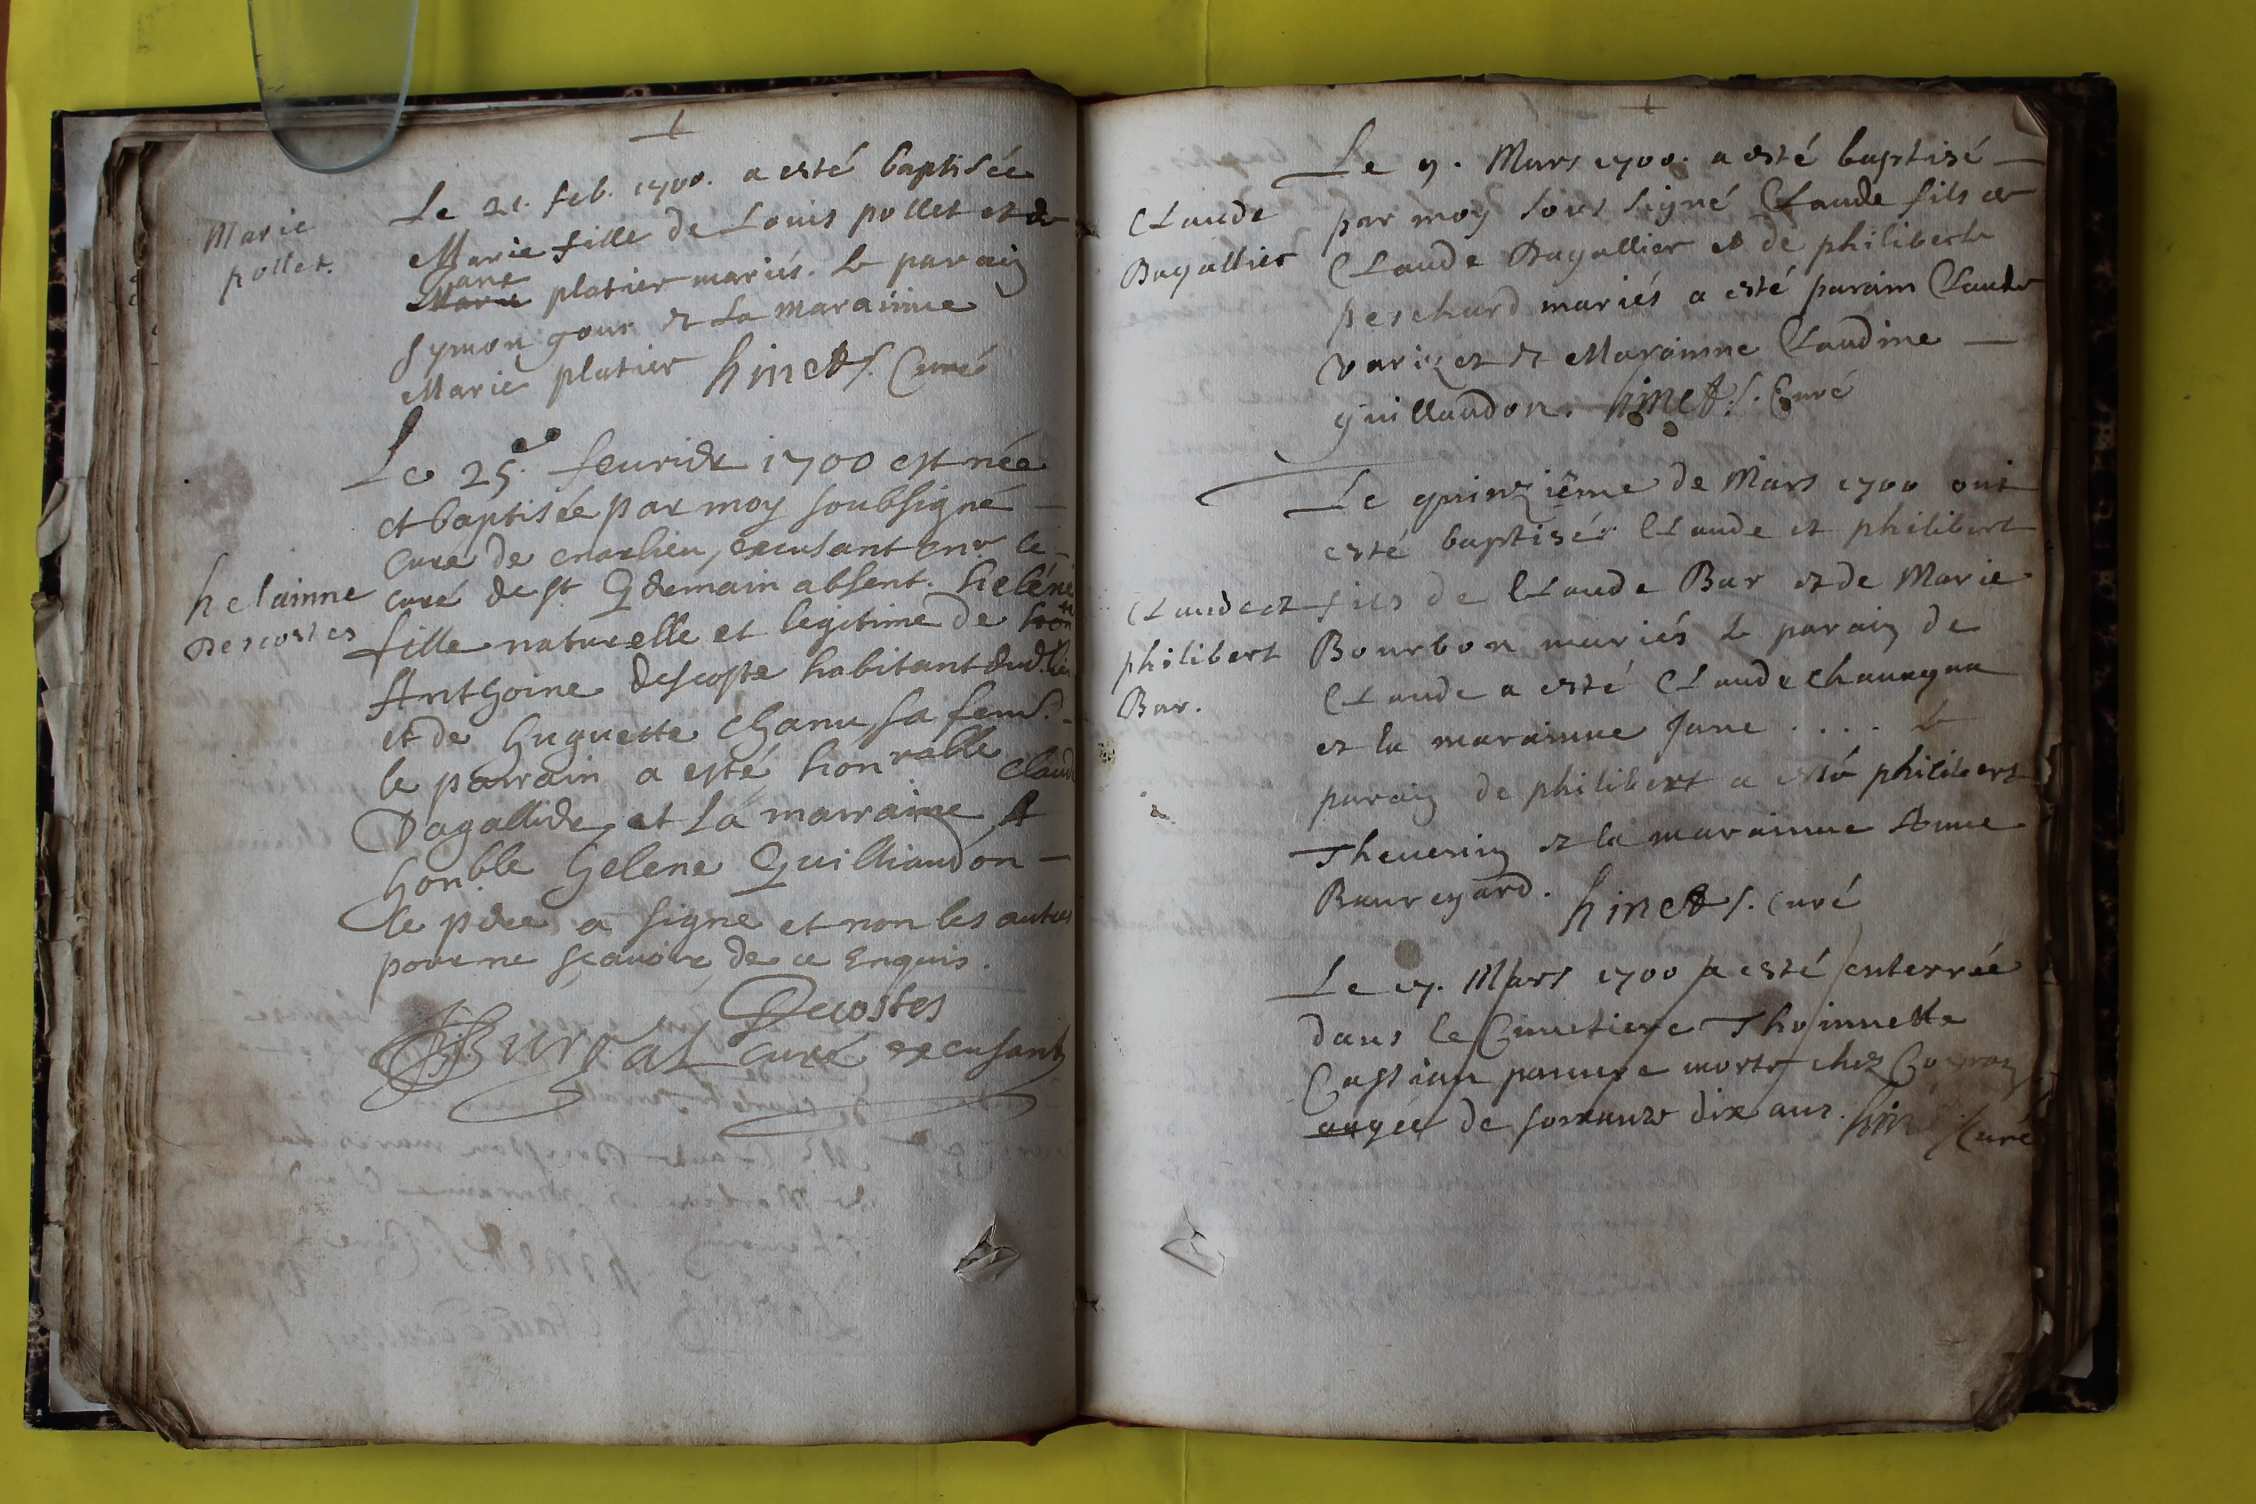 Marie
pollet.
Le 21. feb. 1700. a esté baptisée
Marie fille de Louis pollet et de
Jane
Marie platier mariés. Le parain
Symon gour et La marainne
Marie platier hinet S. Curé
helainne
Descostes
Le 25e. feurier 1700 est née
et baptisée par moy soubsigné
curé de charlieu, excusant mr. le
curé de st. Germain absent. heléne
fille naturelle et legitime de hon
Anthoine descoste habitant dud. lieu
et de huguette Chanu sa fem.
le parrain a esté honrable Claude
Dagallier, et La marraine
honble helene Guilliaudon
le pere a signé et non les autres
pour ne scauoir de ce Enquis.
Decostes
Bureal curé excusant
Claude
Dagallier
Le 9. Mars 1700. a esté baptisé
par moy sous signé Claude fils de
Claude Dagallier et de philiberte
perchard mariés a esté parain Claude
Varizet et Marainne Claudine
guillaudon. hinet S. Curé
Claude et
philibert
Bar.
Le quinziême de Mars 1700 ont
esté baptisés Claude et philibert
fils de Claude Bar et de Marie
Bourbon mariés le parain de
Claude a esté Claude chauagna
et la marainne Jane .... Le
parain de philibert a esté philibert
Theuenin et la marainne Anne
Bauregard. hinet S. curé
Le 17. Mars 1700 a esté enterrée
dans le Cimetiere Thoinnette
Castian pauure morte chez
augée de soixante dix ans. hinet S. Curé